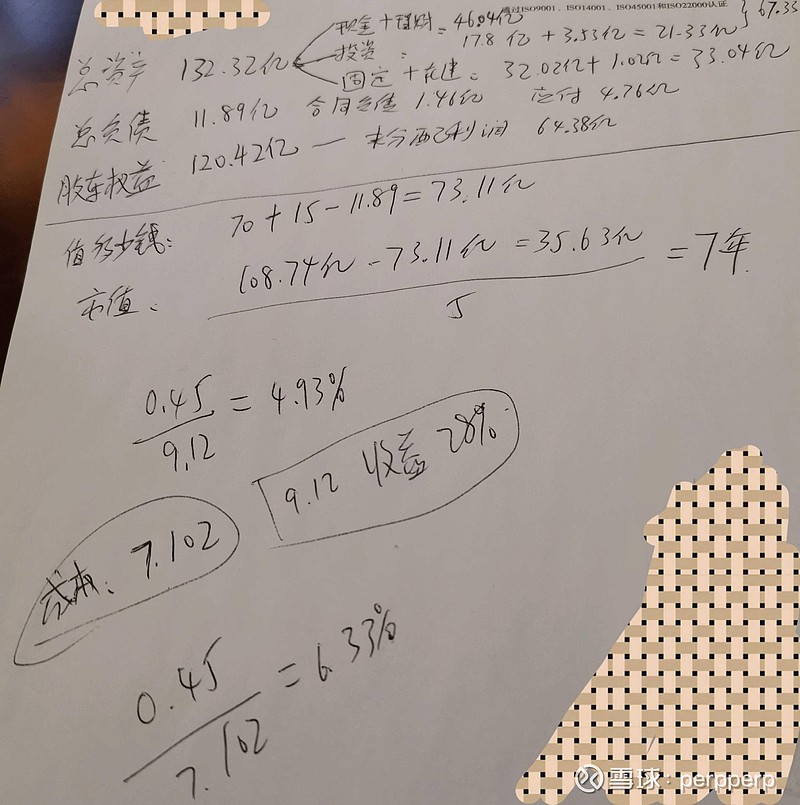 通过ISO9001、ISO14001、ISO45001和ISO22000认证
现金+理财 = 46.04亿
总资产 132.32亿 投资: 17.8亿 + 3.53亿 = 21.33亿 } 67.35
固定+在建: 32.02亿+1.02亿 = 33.04亿
总负债 11.89亿 合同负债 1.46亿 应付 4.76亿
股东权益 120.42亿 — 未分配利润 64.38亿
值多少钱: 70 + 15 - 11.89 = 73.11亿
市值: 108.74亿 - 73.11亿 = 35.63亿 = 7年
5
0.45 = 4.93%
9.12
9.12 收益 28%
成本: 7.102
0.45 = 6.33%
7.102
雪球: perpperp